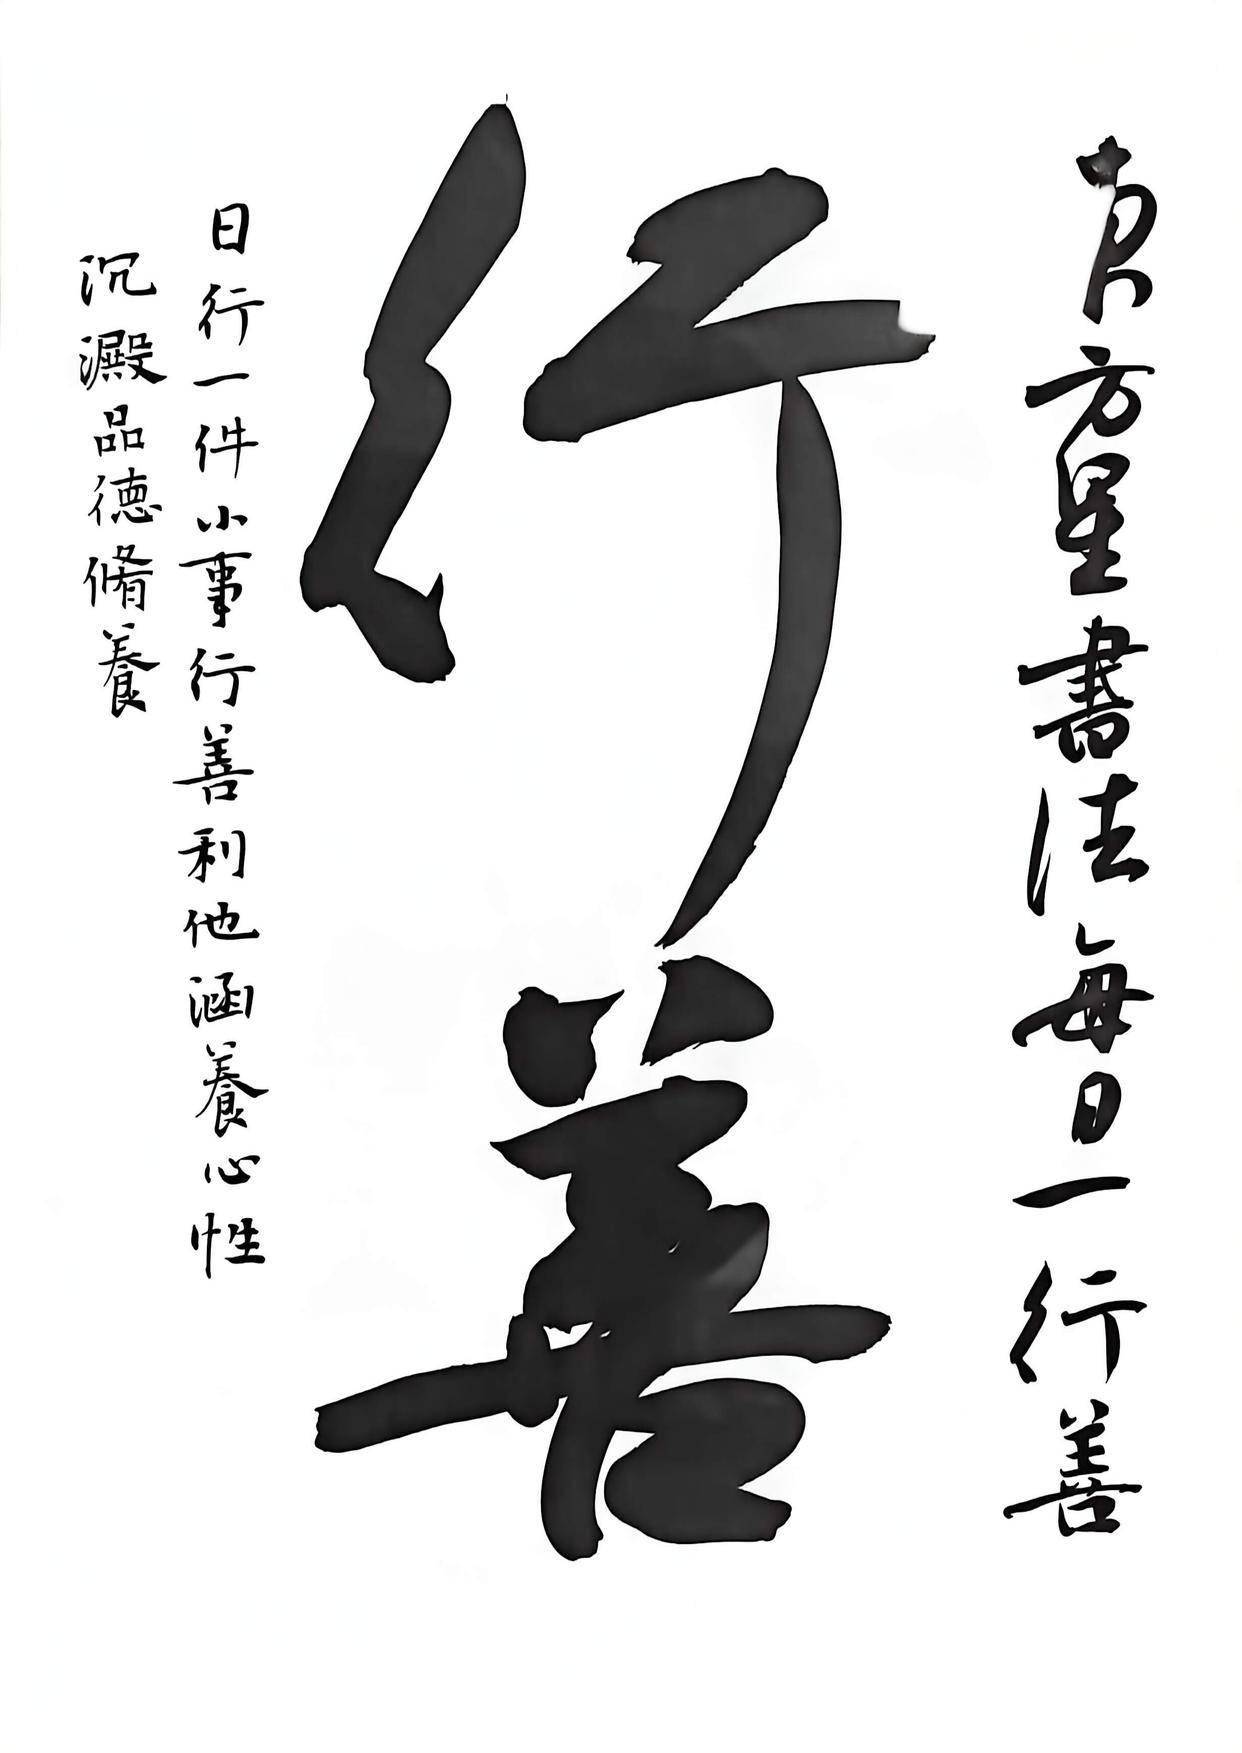 東方星書法每日一行善
行善
日行一件小事行善利他涵養心性
沉澱品德脩養